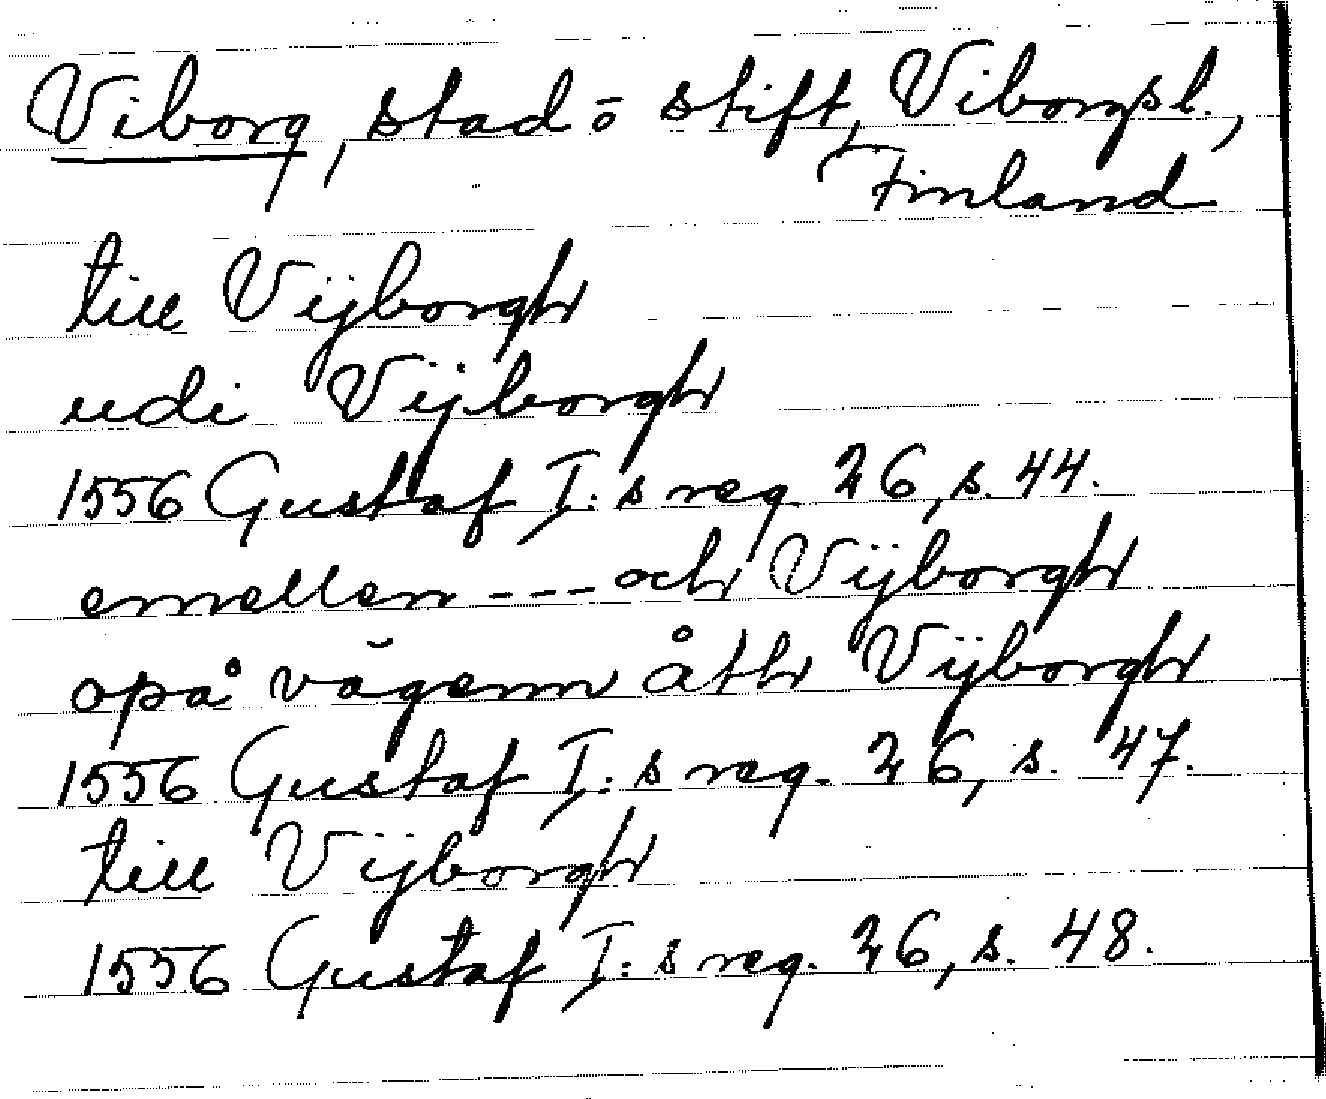 Viborg, stad o stift, Viborgsl.,
Finland
till Vijborgh
udi Vijborgh
1556 Gustaf I:s reg. 26, s. 44.
emellen --- och Vijborgh
opå vägenn åth Vijborgh
1556 Gustaf I:s reg. 26, s. 47.
till Vijborgh
1556 Gustaf I:s reg. 26, s. 48.